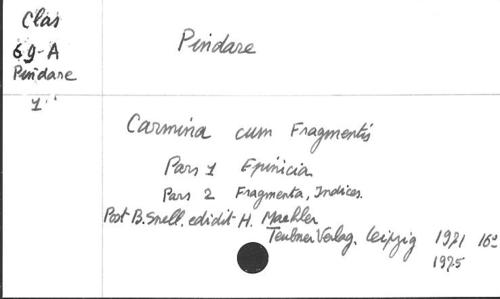 Clas
69-A
Pindare
1
Pindare
Carmina cum Fragmentis
Pars 1 Epinicia
Pars 2 Fragmenta, Indices.
Post B. Snell. edidit H. Maehler
Teubner Verlag. Leipzig 1971 16°
1975